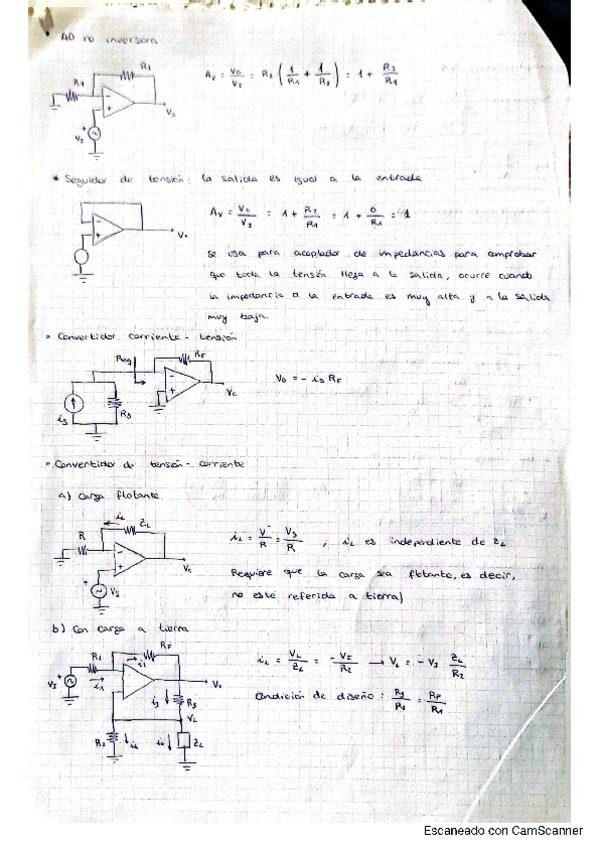 AO no inversora
R2
R1
Vo
VI
Av = Vo/VI = R2 (1/R1 + 1/R2) = 1 + R2/R1
* Seguidor de tensión: la salida es igual a la entrada
Vo
Av = Vo/VI = 1 + R2/R1 = 1 + 0/R1 = 1
se usa para acoplador de impedancias para comprobar
que toda la tensión llega a la salida, ocurre cuando
la impedancia a la entrada es muy alta y a la salida
muy baja.
• Convertidor corriente - tensión
RF
is
Rs
Vo
Vo = - is RF
• Convertidor de tensión - corriente
a) Carga flotante
iL
ZL
R
Vo
Vs
iL = V⁻/R = Vs/R , iL es independiente de ZL
Requiere que la carga sea flotante, es decir,
no esté referida a tierra)
b) Con carga a tierra
RF
R1
i1
VI
Vo
i3
R3
VL
R2
iL
ZL
iL = VL/ZL = - VI/R2 → VL = - VI ZL/R2
Condición de diseño: R3/R2 = RF/R1
Escaneado con CamScanner